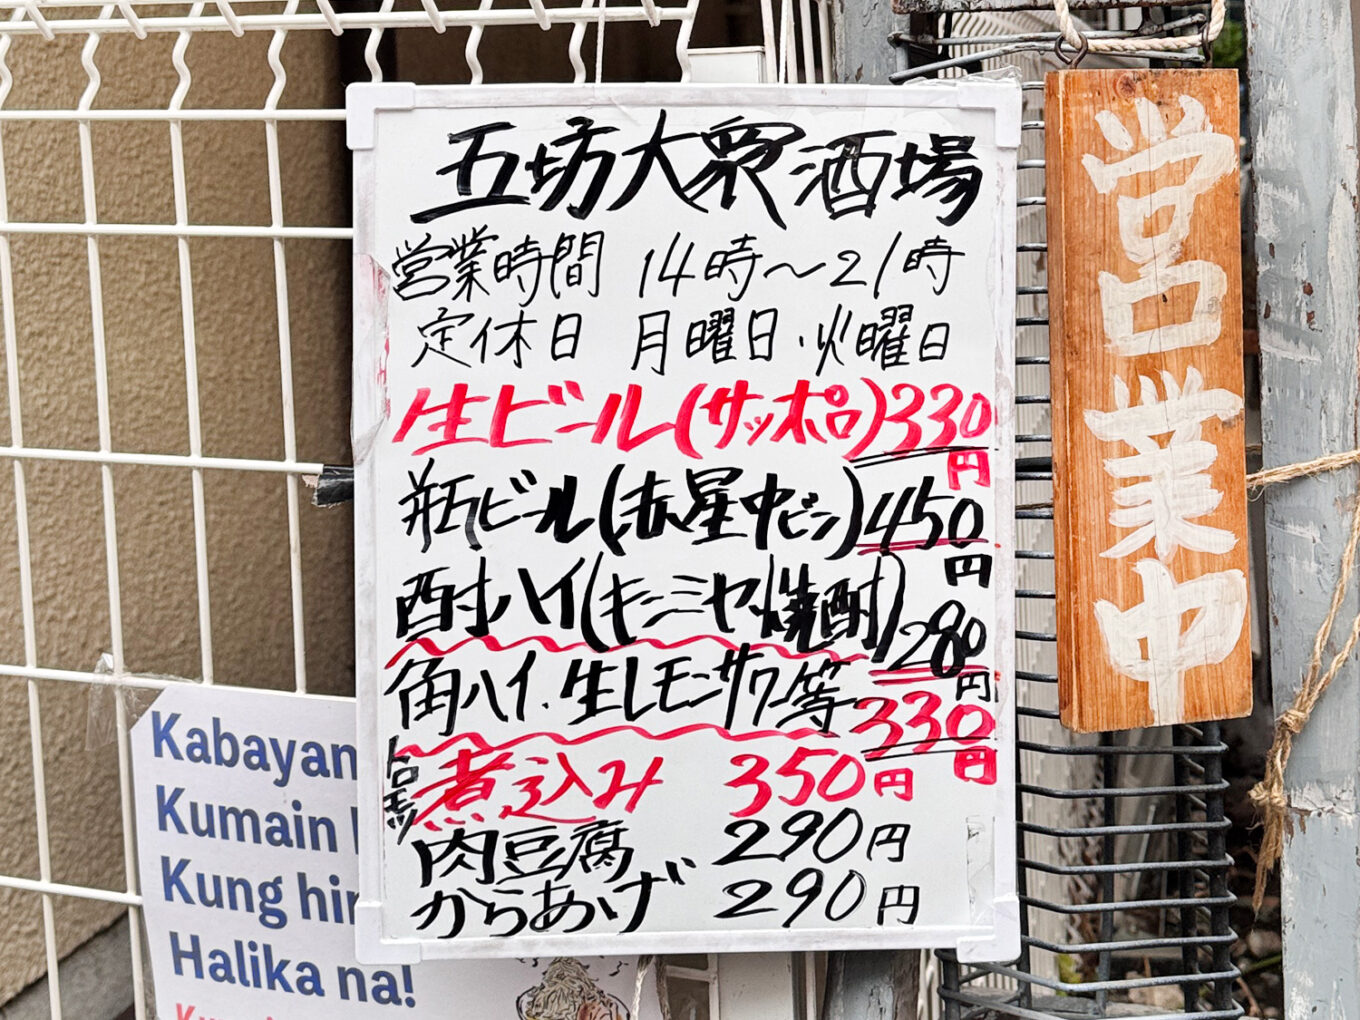 五坊大衆酒場
営業時間 14時～21時
定休日 月曜日・火曜日
生ビール(サッポロ)330円
瓶ビール(赤星中ビン)450円
酎ハイ(キンミヤ焼酎)280円
角ハイ.生レモンサワー等330円
煮込み 350円
肉豆腐 290円
からあげ 290円
営業中
Kabayan
Kumain
Kung
Halika na!